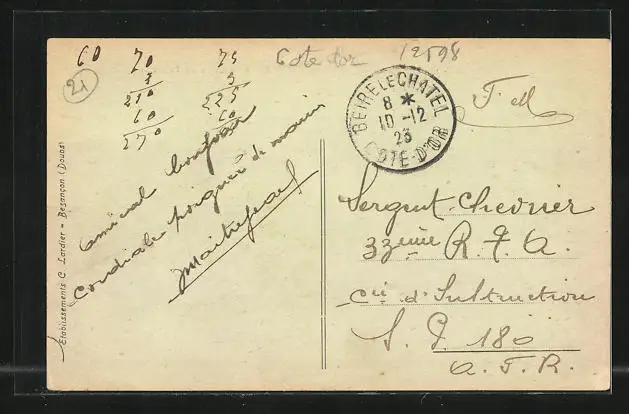 60 70 75
3 3
210 225
60 60
270
Cote d'or 12598
21
BEIRE LE CHATEL
8 *
10-12
23
COTE-D'OR
F M
amical bonjour
cordiale poignée de main
Sergent Chevrier
33eme R. F. A.
Cie d'Instruction
S. P. 180
A. F. R.
Etablissements C. Lardier - Besançon (Doubs)